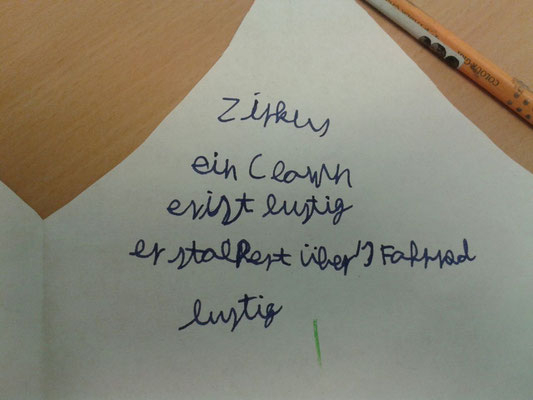 Zirkus
ein Clown
er ist lustig
er stolpert über's Fahrrad
lustig